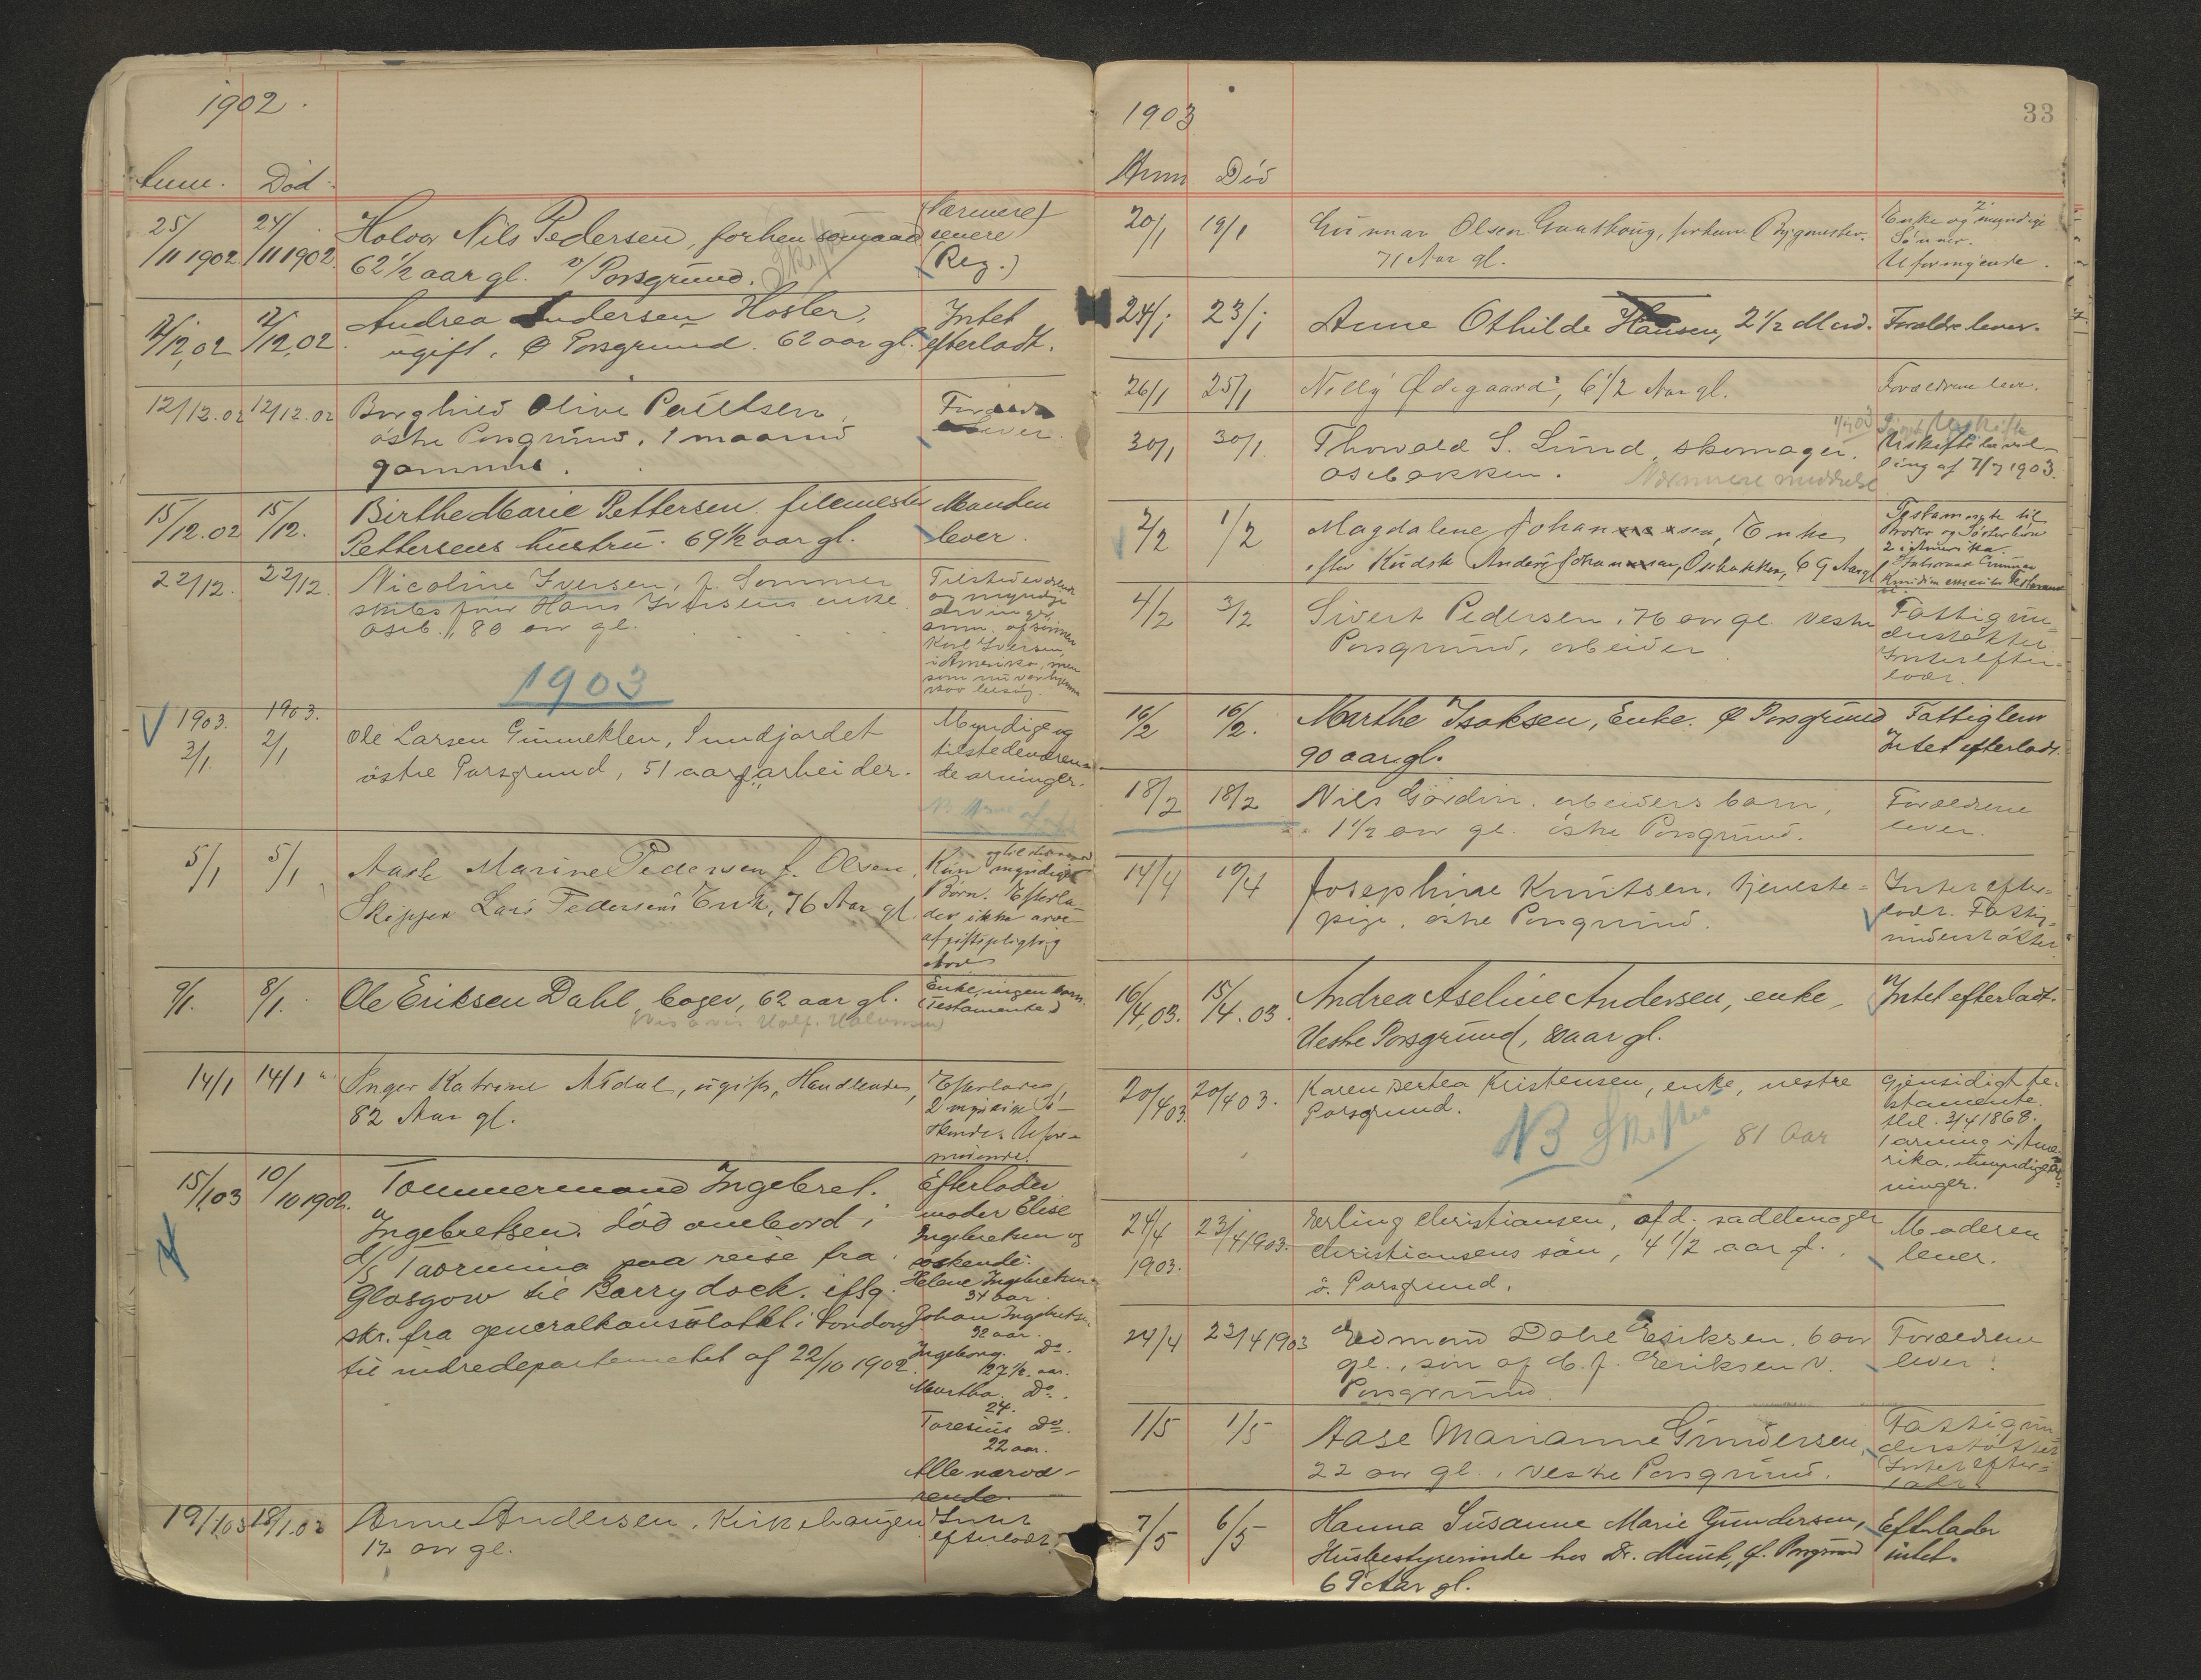 1902.
Anm. Død.
25/11 1902 24/11 1902. Holvor Nils Pedersen, forhen sømand (Nærmere)
senere
62 1/2 aar gl. v/Porsgrund. (Reg.)
Skifte
12/12,02 12/12,02. Andrea Andersen Hosler, Intet
ugift, Ø Porsgrund. 62 aar gl. efterladt.
12/12.02 12/12.02 Borghild Olive Paulsen,
østre Porsgrund, 1 maaned lever.
gammel.
15/12.02 15/12. Birthe Marie Pettersen, filemester Manden
Pettersens hustru. 69 1/2 aar gl. lever.
22/12. 22/12. Nicoline Iversen, f. Sommer Tilstedeværende
skibsfører Hans Iversens enke og myndige
Oseb., 80 aar gl. arvinger,
anm. af sønnen
Karl Iversen,
i Amerika, men
som nu var hjemme
paa besøg.
1903
1903. 3/1. 1903. 2/1 Ole Larsen Gunneklev, Sundjordet Myndige og
østre Porsgrund, 51 aar g. arbeider. tilstedeværen-
de arvinger.
5/1 5/1 Aase Marine Pedersen f. Olsen, Kun myndige og tilstedevær.
Skipper Lars Pedersens Enke, 76 Aar gl. Børn. Efterla-
der ikke arve-
afgiftspligtig
9/1. 8/1. Ole Eriksen Dahl, bager, 62 aar gl. Enke, ingen barn.
(Testamente)
(Vis a vis Half. Halvorsen)
14/1 14/1 Inger Katrine Aadal, ugift, Handlende, Efterlader
82 Aar gl. 2 myndige Sø-
skende. Ufor-
muende.
15/1,03 10/10 1902. Tømmermand Ingebret. Efterlader
Ingebretsen, død ombord i moder Elise
Ingebretsen og
d/s Taormina paa reise fra søskende:
Glasgow til Barry dock, iflg. Helene Ingebretsen
34 aar.
skr. fra generalkonsulatet i London Johan Ingebretsen
32 aar.
til indredepartementet af 22/10 1902. Ingeborg. Do.
27 1/2 aar.
Martha. Do.
24.
Toresius Do.
22 aar.
Alle nærvæ-
rende.
19/1,03 18/1.03 Anne Andersen, Kirkehaugen Intet
12 aar gl. efterladt.
1903
33
Anm Død
20/1 19/1 Gunnar Olsen Gaaskoug, forhenv. Bygmester. Enke og 2 myndige
71 Aar gl. Sønner.
Uformuende.
24/1 23/1 Anne Othilde Hansen, 2 1/2 Mnd. Forældre lever.
26/1 25/1 Nelly Ødegaard, 6 1/2 Aar gl. Forældrene lever.
30/1 30/1. Thorvald S. Lund, skomager. Uskiftebevil-
osebakken. ling af 7/7 1903.
Nærmere meddelelse
2/2 1/2 Magdalene Johannesen, Enke Testamente til
Broder og Søsterbørn
2 i Amerika.
efter Kudsk Anders Johannesen, Osebakken, 69 Aar gl.
4/2 3/2 Sivert Pedersen, 76 aar gl. vestre Fattigun-
Porsgrund, arbeider derstøttet.
Intet efter-
ladt.
16/2 16/2. Marthe Isaksen, Enke. Ø Porsgrund Fattiglem
90 aar gl. Intet efterladt.
18/2 18/2 Nils Gördin, arbeiders barn, Forældrene
1 1/2 aar gl. østre Porsgrund. lever.
14/4 10/4 Josephine Knutsen, tjeneste- Intet efter-
pige, østre Porsgrund. ladt. Fattig-
understøttet
16/4,03. 15/4.03. Andrea Aseline Andersen, enke, Intet efterladt.
Vestre Porsgrund, 80 aar gl.
20/4 03. 20/4 03. Karen Bertea Kristensen, enke, vestre Gjensidigt te-
Porsgrund. stamente.
dtd. 3/4 1868.
NB Skifte 81 Aar 1 arving i Ame-
rika. Umyndige ar-
vinger.
24/4 1903. 23/4 1903. Erling Christiansen, afd. sadelmager Moderen
Christiansens søn, 4 1/2 aar g. lever.
ø. Porsgrund.
24/4 23/4 1903 Edmund Dahl Eriksen, 6 aar Forældrene
gl., søn af C. J. Eriksen V. lever.
Porsgrund.
1/5 1/5 Aase Marianne Gundersen, Fattigun-
22 aar gl., vestre Porsgrund. derstøttet
Intet efter-
ladt
7/5 6/5 Hanna Susanne Marie Gundersen, Efterlader
Husbestyrerinde hos Dr. Munk, Ø. Porsgrund intet.
69 Aar gl.